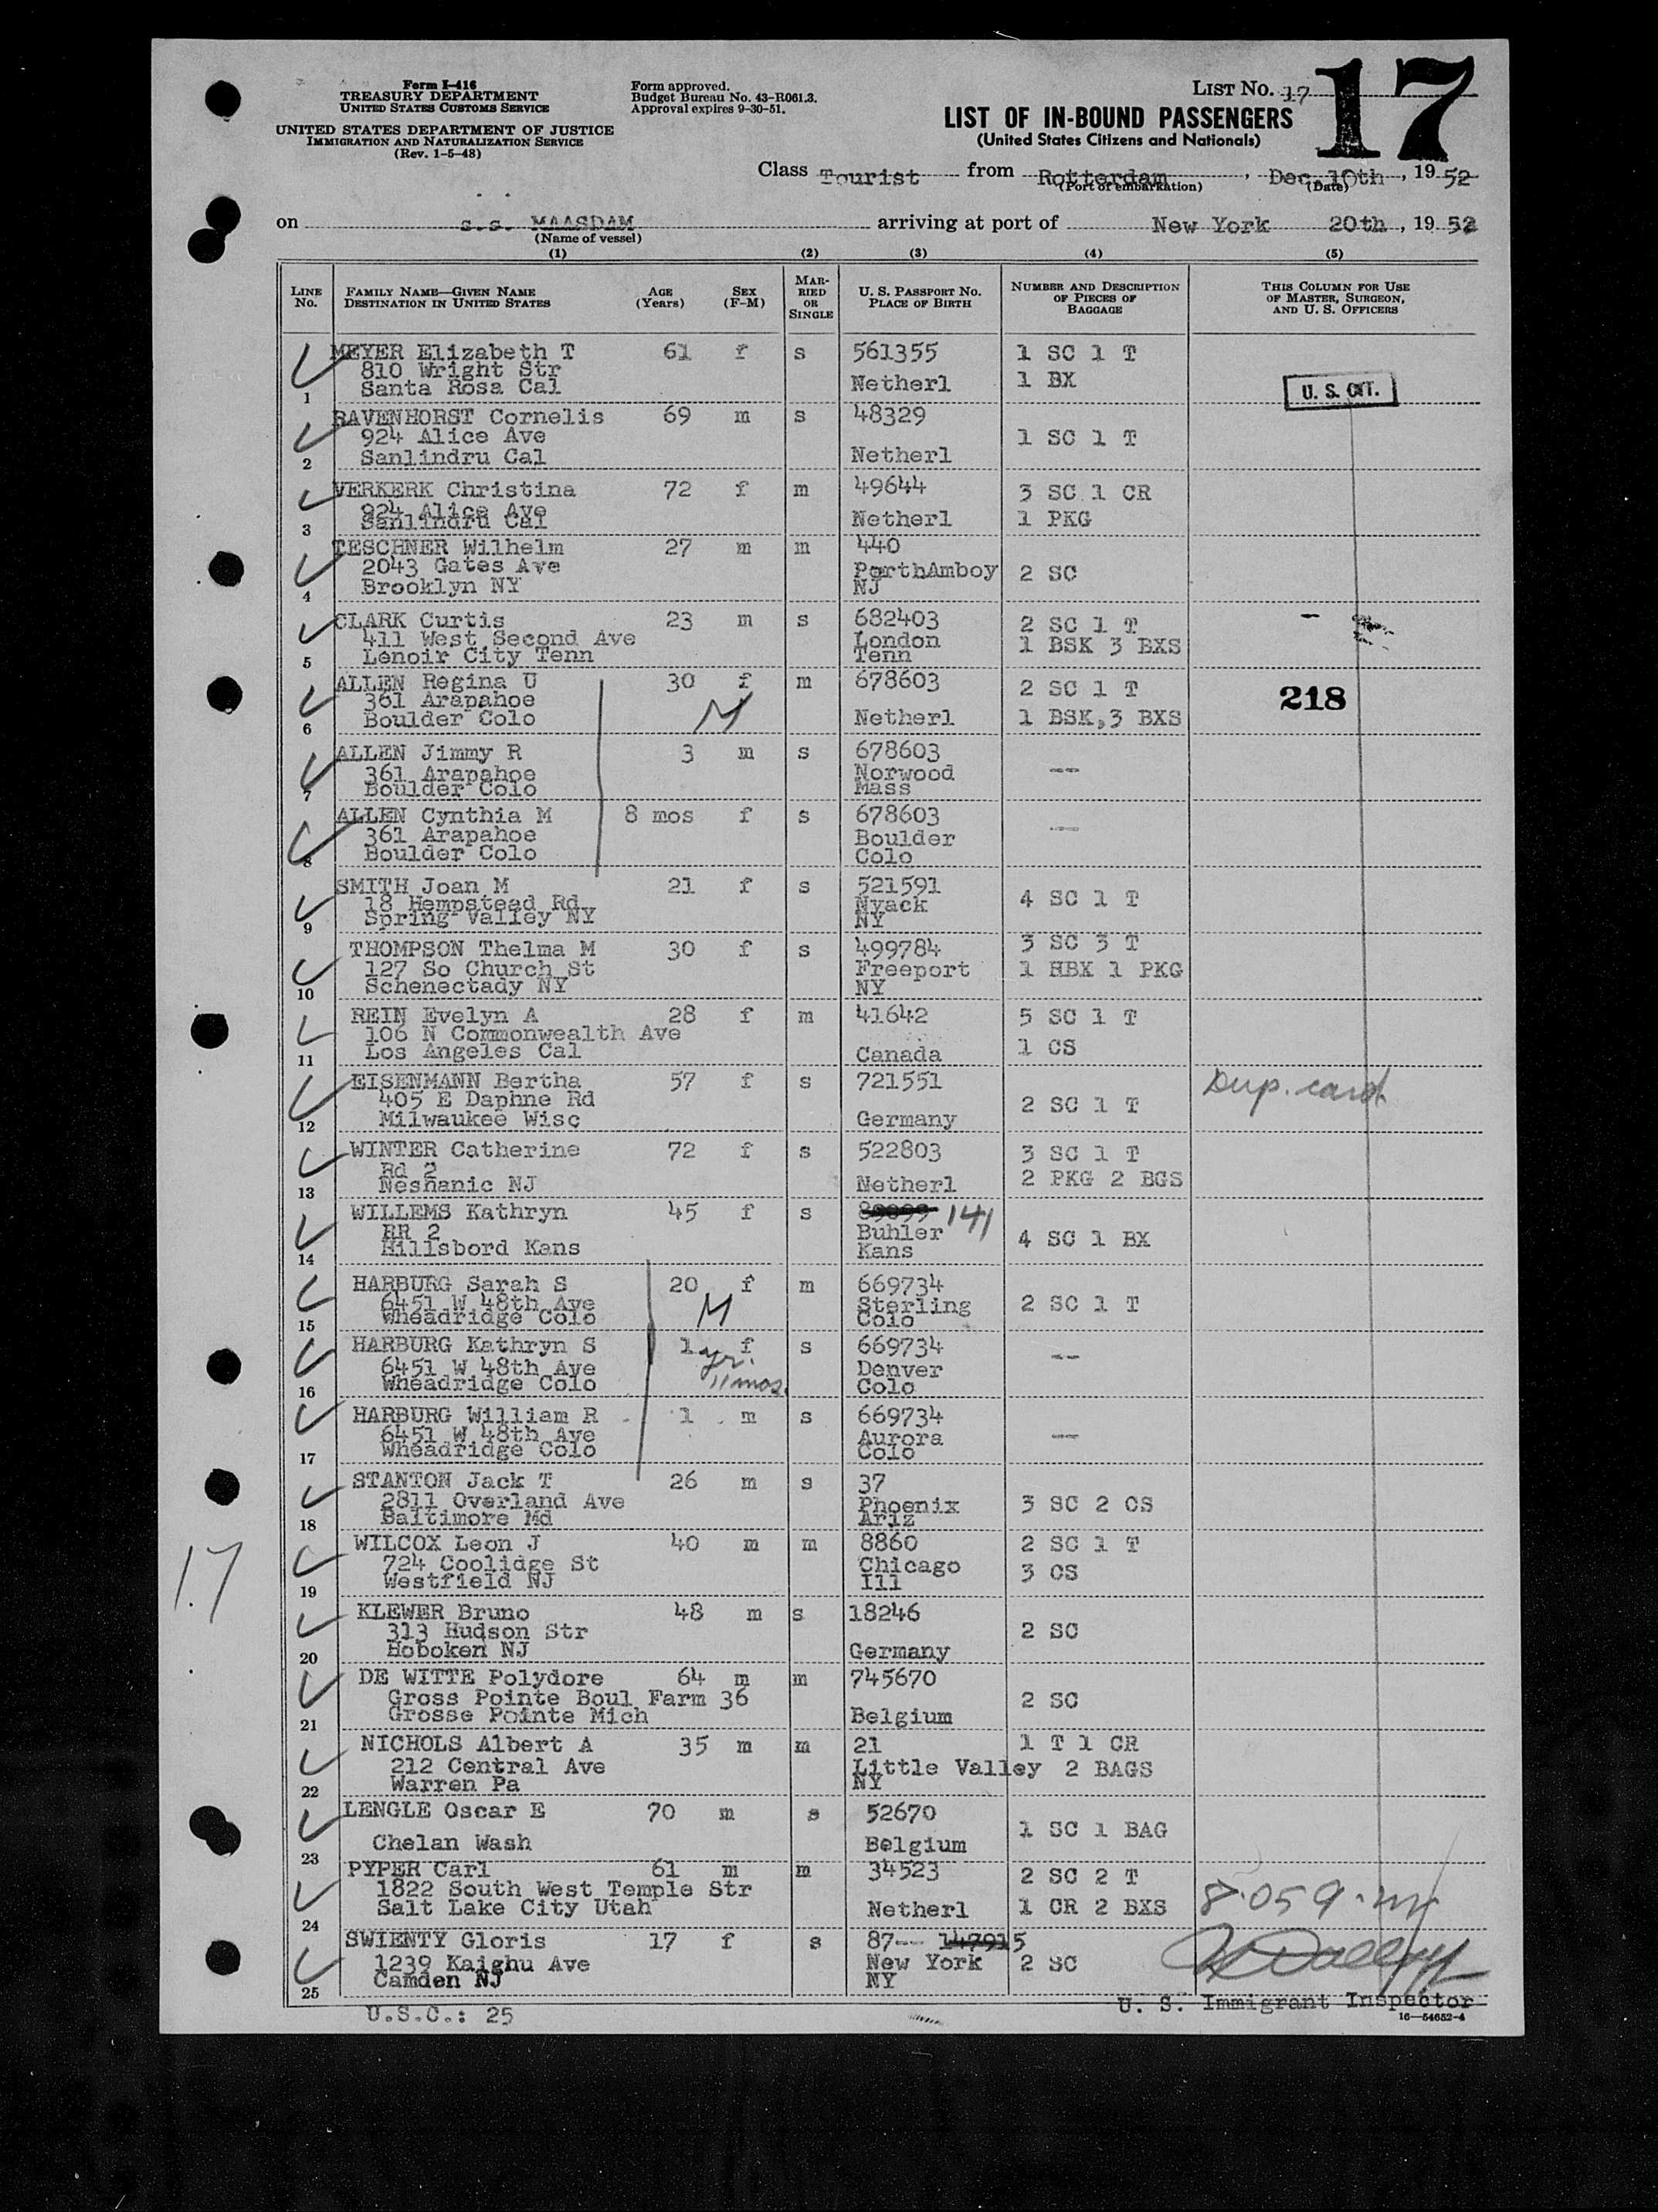 Form I-416
TREASURY DEPARTMENT
UNITED STATES CUSTOMS SERVICE
UNITED STATES DEPARTMENT OF JUSTICE
IMMIGRATION AND NATURALIZATION SERVICE
(Rev. 1-5-48)
Form approved.
Budget Bureau No. 43-R061.3.
Approval expires 9-30-51.
LIST No. 17
17
LIST OF IN-BOUND PASSENGERS
(United States Citizens and Nationals)
Class Tourist from Rotterdam, Dec. 10th, 19 52
(Port of embarkation) (Date)
on s.s. MAASDAM arriving at port of New York 20th, 19 52
(Name of vessel)
(1) (2) (3) (4) (5)
LINE No. FAMILY NAME—GIVEN NAME DESTINATION IN UNITED STATES AGE (Years) SEX (F-M) MARRIED OR SINGLE U. S. PASSPORT No. PLACE OF BIRTH NUMBER AND DESCRIPTION OF PIECES OF BAGGAGE THIS COLUMN FOR USE OF MASTER, SURGEON, AND U. S. OFFICERS
MEYER Elizabeth T 61 f s 561355 1 SC 1 T
810 Wright Str
Santa Rosa Cal Netherl 1 BX U. S. CIT.
1
RAVENHORST Cornelis 69 m s 48329
924 Alice Ave 1 SC 1 T
Sanlindru Cal Netherl
2
VERKERK Christina 72 f m 49644 3 SC 1 CR
924 Alice Ave
Sanlindru Cal Netherl 1 PKG
3
TESCHNER Wilhelm 27 m m 440
2043 Gates Ave PerthAmboy 2 SC
Brooklyn NY NJ
4
CLARK Curtis 23 m s 682403 2 SC 1 T
411 West Second Ave London 1 BSK 3 BXS
Lenoir City Tenn Tenn
5
ALLEN Regina U 30 f m 678603 2 SC 1 T 218
361 Arapahoe M
Boulder Colo Netherl 1 BSK,3 BXS
6
ALLEN Jimmy R 3 m s 678603
361 Arapahoe Norwood --
Boulder Colo Mass
7
ALLEN Cynthia M 8 mos f s 678603
361 Arapahoe Boulder --
Boulder Colo Colo
8
SMITH Joan M 21 f s 521591
18 Hempstead Rd Nyack 4 SC 1 T
Spring Valley NY NY
9
THOMPSON Thelma M 30 f s 499784 3 SC 3 T
127 So Church St Freeport 1 HBX 1 PKG
Schenectady NY NY
10
REIN Evelyn A 28 f m 41642 5 SC 1 T
106 N Commonwealth Ave
Los Angeles Cal Canada 1 CS
11
EISENMANN Bertha 57 f s 721551 Dup. card
405 E Daphne Rd 2 SC 1 T
Milwaukee Wisc Germany
12
WINTER Catherine 72 f s 522803 3 SC 1 T
Rd 2
Neshanic NJ Netherl 2 PKG 2 BGS
13
WILLEMS Kathryn 45 f s 141
RR 2 Buhler 4 SC 1 BX
Hillsbord Kans Kans
14
HARBURG Sarah S 20 f m 669734
6451 W 48th Ave M Sterling 2 SC 1 T
Wheadridge Colo Colo
15
HARBURG Kathryn S 1 yr. 11 mos. f s 669734
6451 W 48th Ave Denver --
Wheadridge Colo Colo
16
HARBURG William R 1 m s 669734
6451 W 48th Ave Aurora --
Wheadridge Colo Colo
17
STANTON Jack T 26 m s 37
2811 Overland Ave Phoenix 3 SC 2 CS
Baltimore Md Ariz
18
17
WILCOX Leon J 40 m m 8860 2 SC 1 T
724 Coolidge St Chicago 3 CS
Westfield NJ Ill
19
KLEWER Bruno 48 m s 18246
313 Hudson Str 2 SC
Hoboken NJ Germany
20
DE WITTE Polydore 64 m m 745670
Gross Pointe Boul Farm 36 2 SC
Grosse Pointe Mich Belgium
21
NICHOLS Albert A 35 m m 21 1 T 1 CR
212 Central Ave Little Valley 2 BAGS
Warren Pa NY
22
LENGLE Oscar E 70 m s 52670
1 SC 1 BAG
Chelan Wash Belgium
23
PYPER Carl 61 m m 34523 2 SC 2 T
1822 South West Temple Str
Salt Lake City Utah Netherl 1 CR 2 BXS
24
SWIENTY Gloris 17 f s 87-- 147915
1239 Kaighu Ave New York 2 SC
Camden NJ NY
25
U.S.C.: 25
U. S. Immigrant Inspector
16—54652-4